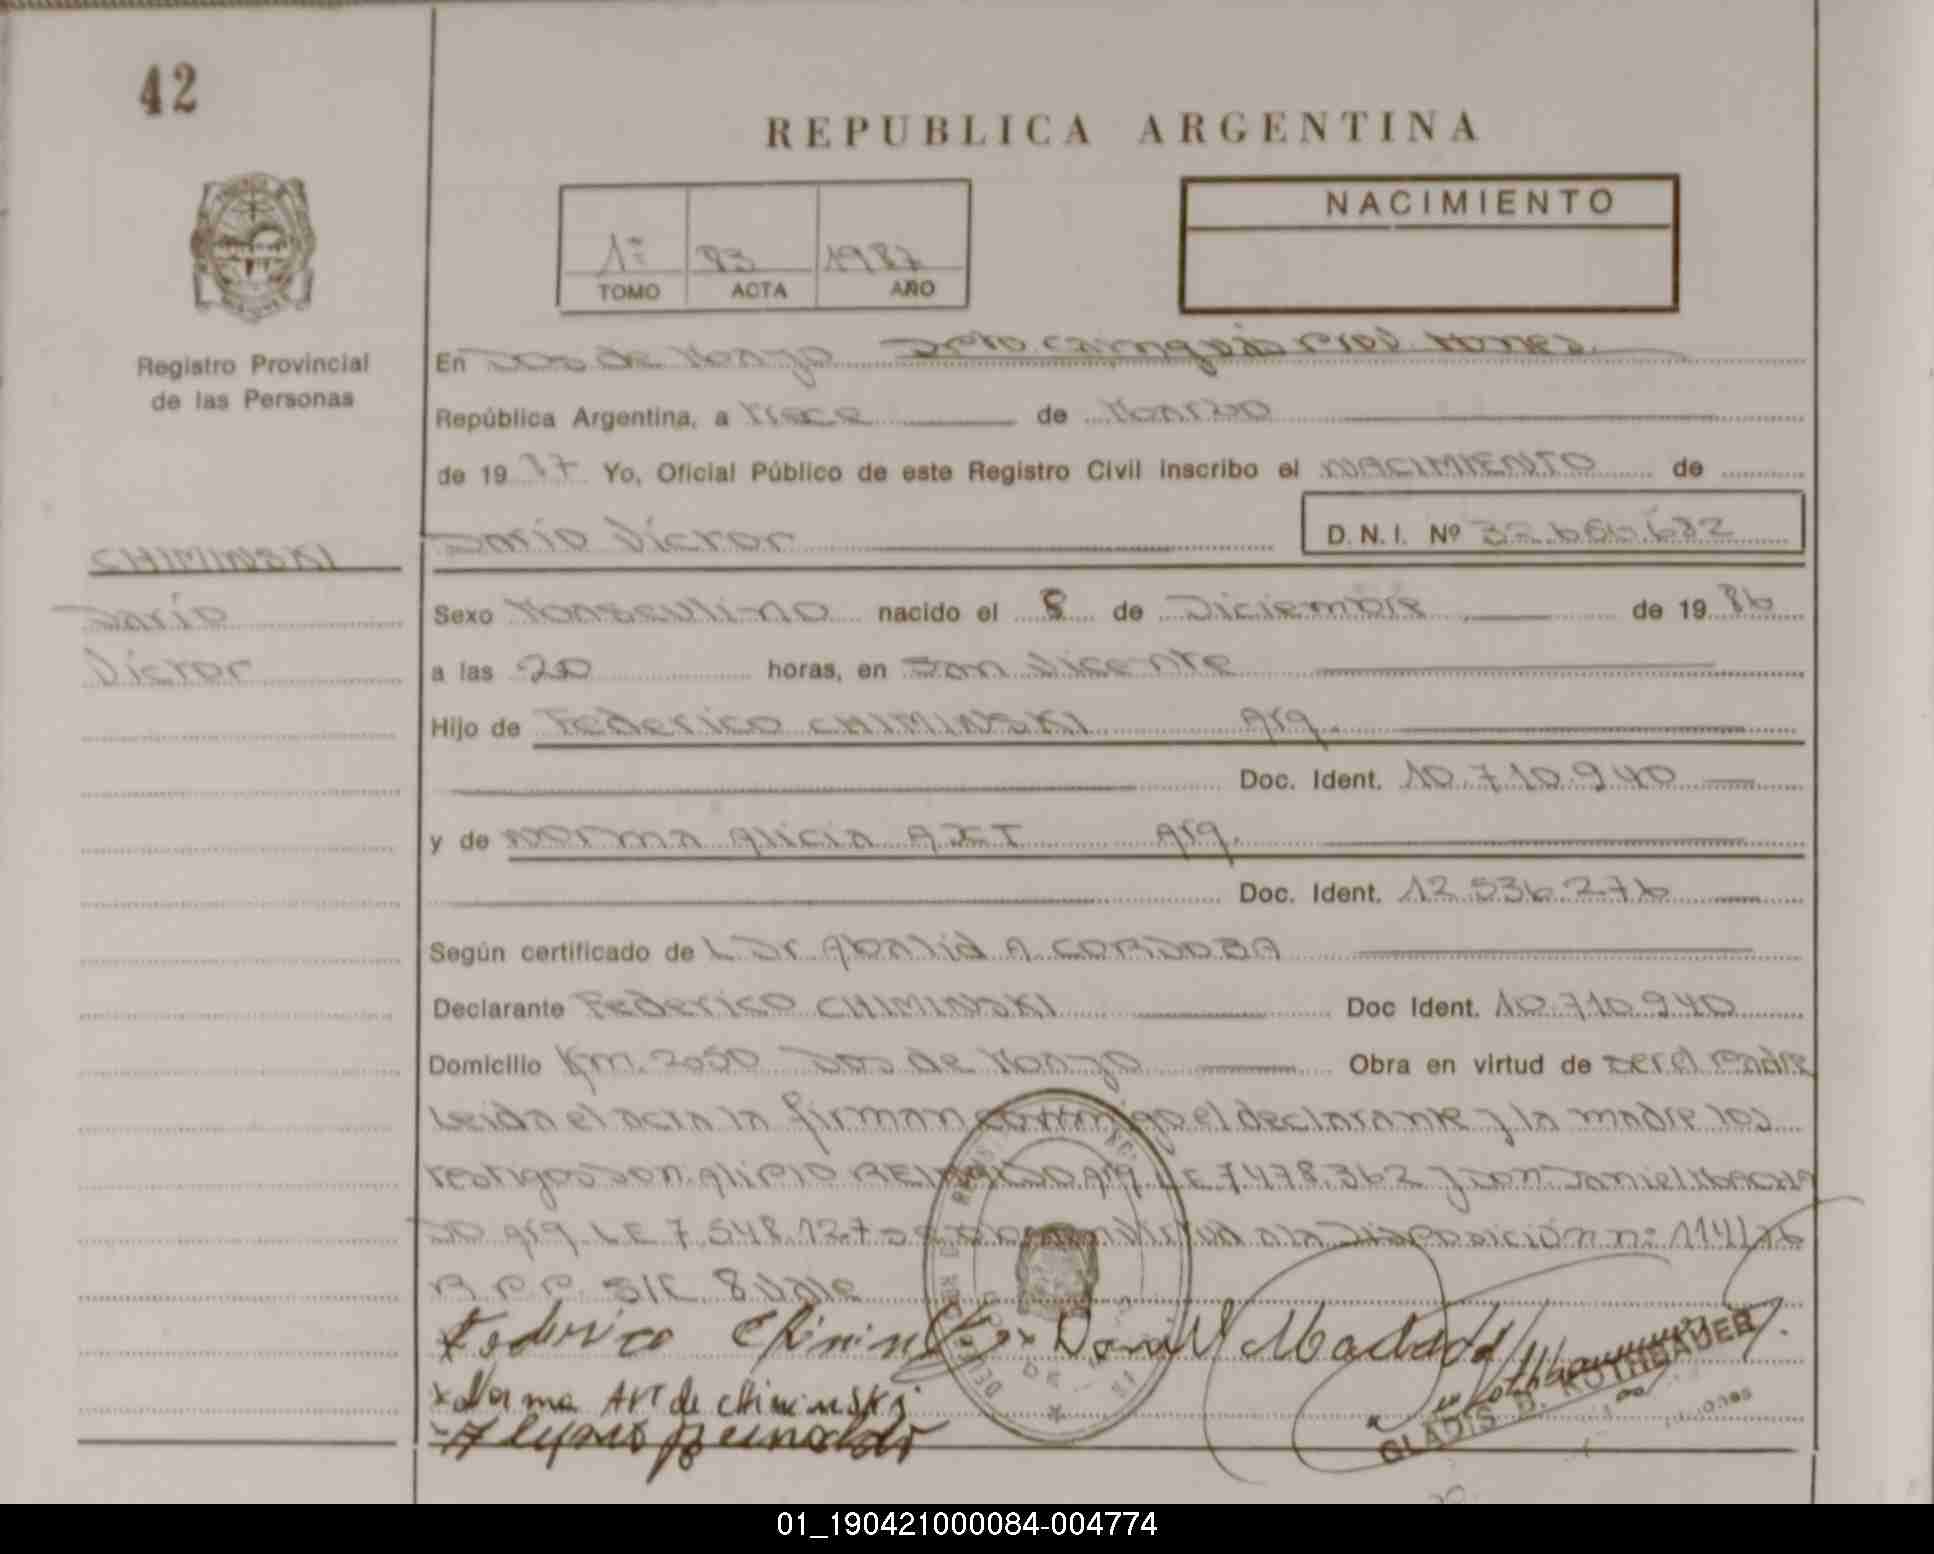 42
REPUBLICA ARGENTINA
NACIMIENTO
1º 83 1987
TOMO ACTA AÑO
Registro Provincial
de las Personas
En Dos de Mayo Dpto Cainguás Prov. Mones.
República Argentina, a Trece de Marzo
de 1987 Yo, Oficial Público de este Registro Civil inscribo el NACIMIENTO de
Darío Víctor D.N.I. Nº
CHIMINSKI
Darío
Víctor
Sexo Masculino nacido el 8 de Diciembre de 1986
a las 20 horas, en San Vicente
Hijo de Federico CHIMINSKI Arg.
Doc. Ident. 10.710.940
y de Norma Alicia AXT Arg.
Doc. Ident. 12.536.276
Según certificado de L Dr. A. CORDOBA
Declarante Federico CHIMINSKI Doc Ident. 10.710.940
Domicilio Km. 2050 Dos de Mayo Obra en virtud de ser el Padre
Leida el acta la firman conmigo el declarante y la madre los
testigos Don Alipio Arg. LE 7.478.362 y Don Daniel
DO Arg. LE 7.548.127 en virtud a la Disposición nº 114/76
R.P.P. S/R 8 Vale
Federico Chiminski x Daniel Machado
x Norma Axt de Chiminski
GLADIS B. ROTHBAUER
01_190421000084-004774